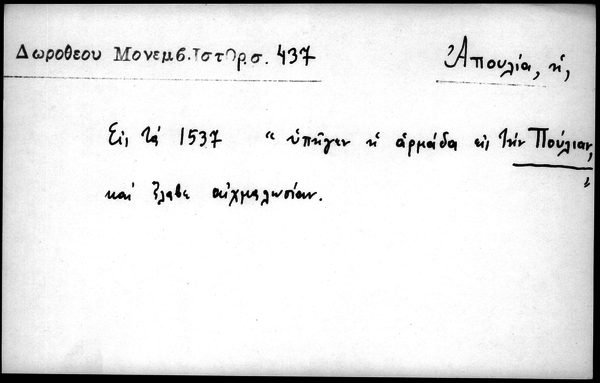 Δωροθεου Μονεμβ.Ιστορ.σ. 437
Ἀπουλία, ἡ,
Εἰς τὰ 1537 " ὑπῆγεν ἡ ἁρμάδα εἰς τὴν Πούλιαν,
καὶ ἔλαβε αἰχμαλωσίαν.